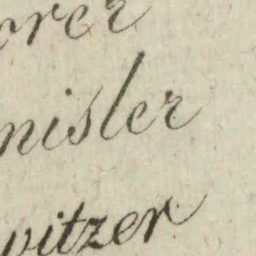 orer
nisler
witzer